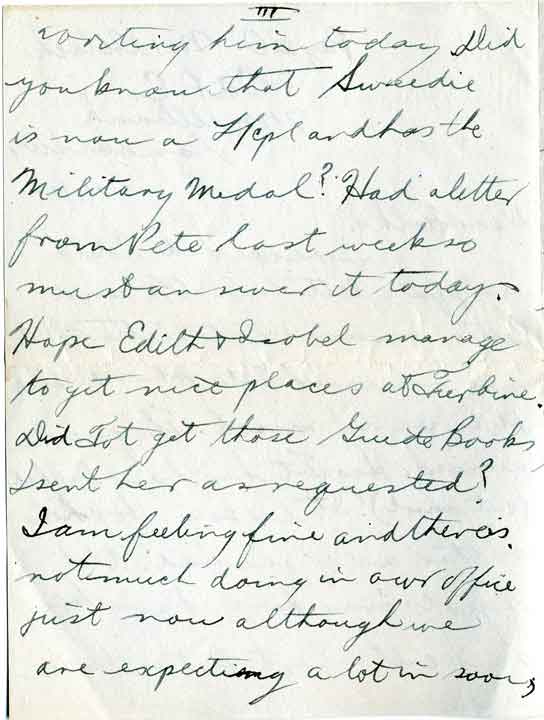 III
writing him today. Did
you know that Sweedie
is now a L/cpl and has the
Military Medal? Had a letter
from Pete last week so
must answer it today.
Hope Edith & Isobel manage
to get nice places at
Did Tot get those Guide Books
I sent her as requested?
I am feeling fine and there is
not much doing in our office
just now although we
are expecting a lot in soon,